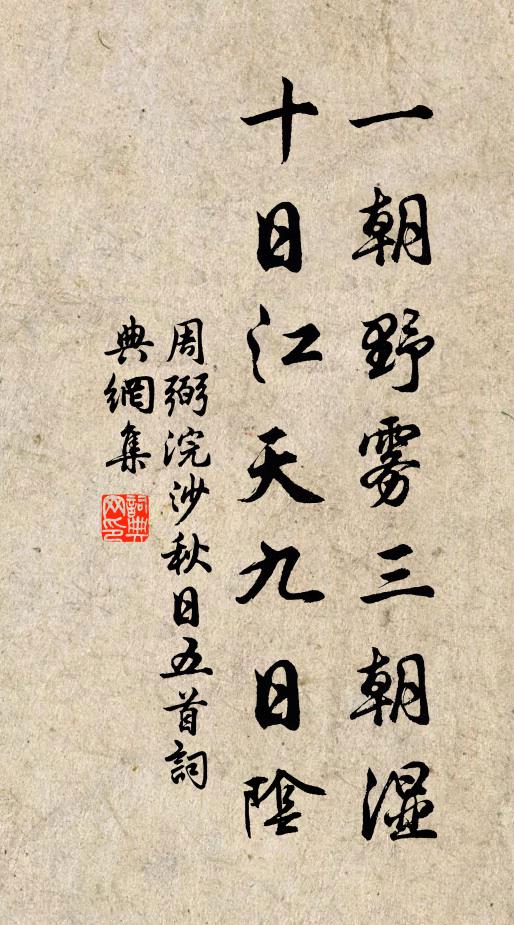 一朝野雾三朝湿
十日江天九日陰
周弼浣沙秋日五首詞
典網集
詞典网印